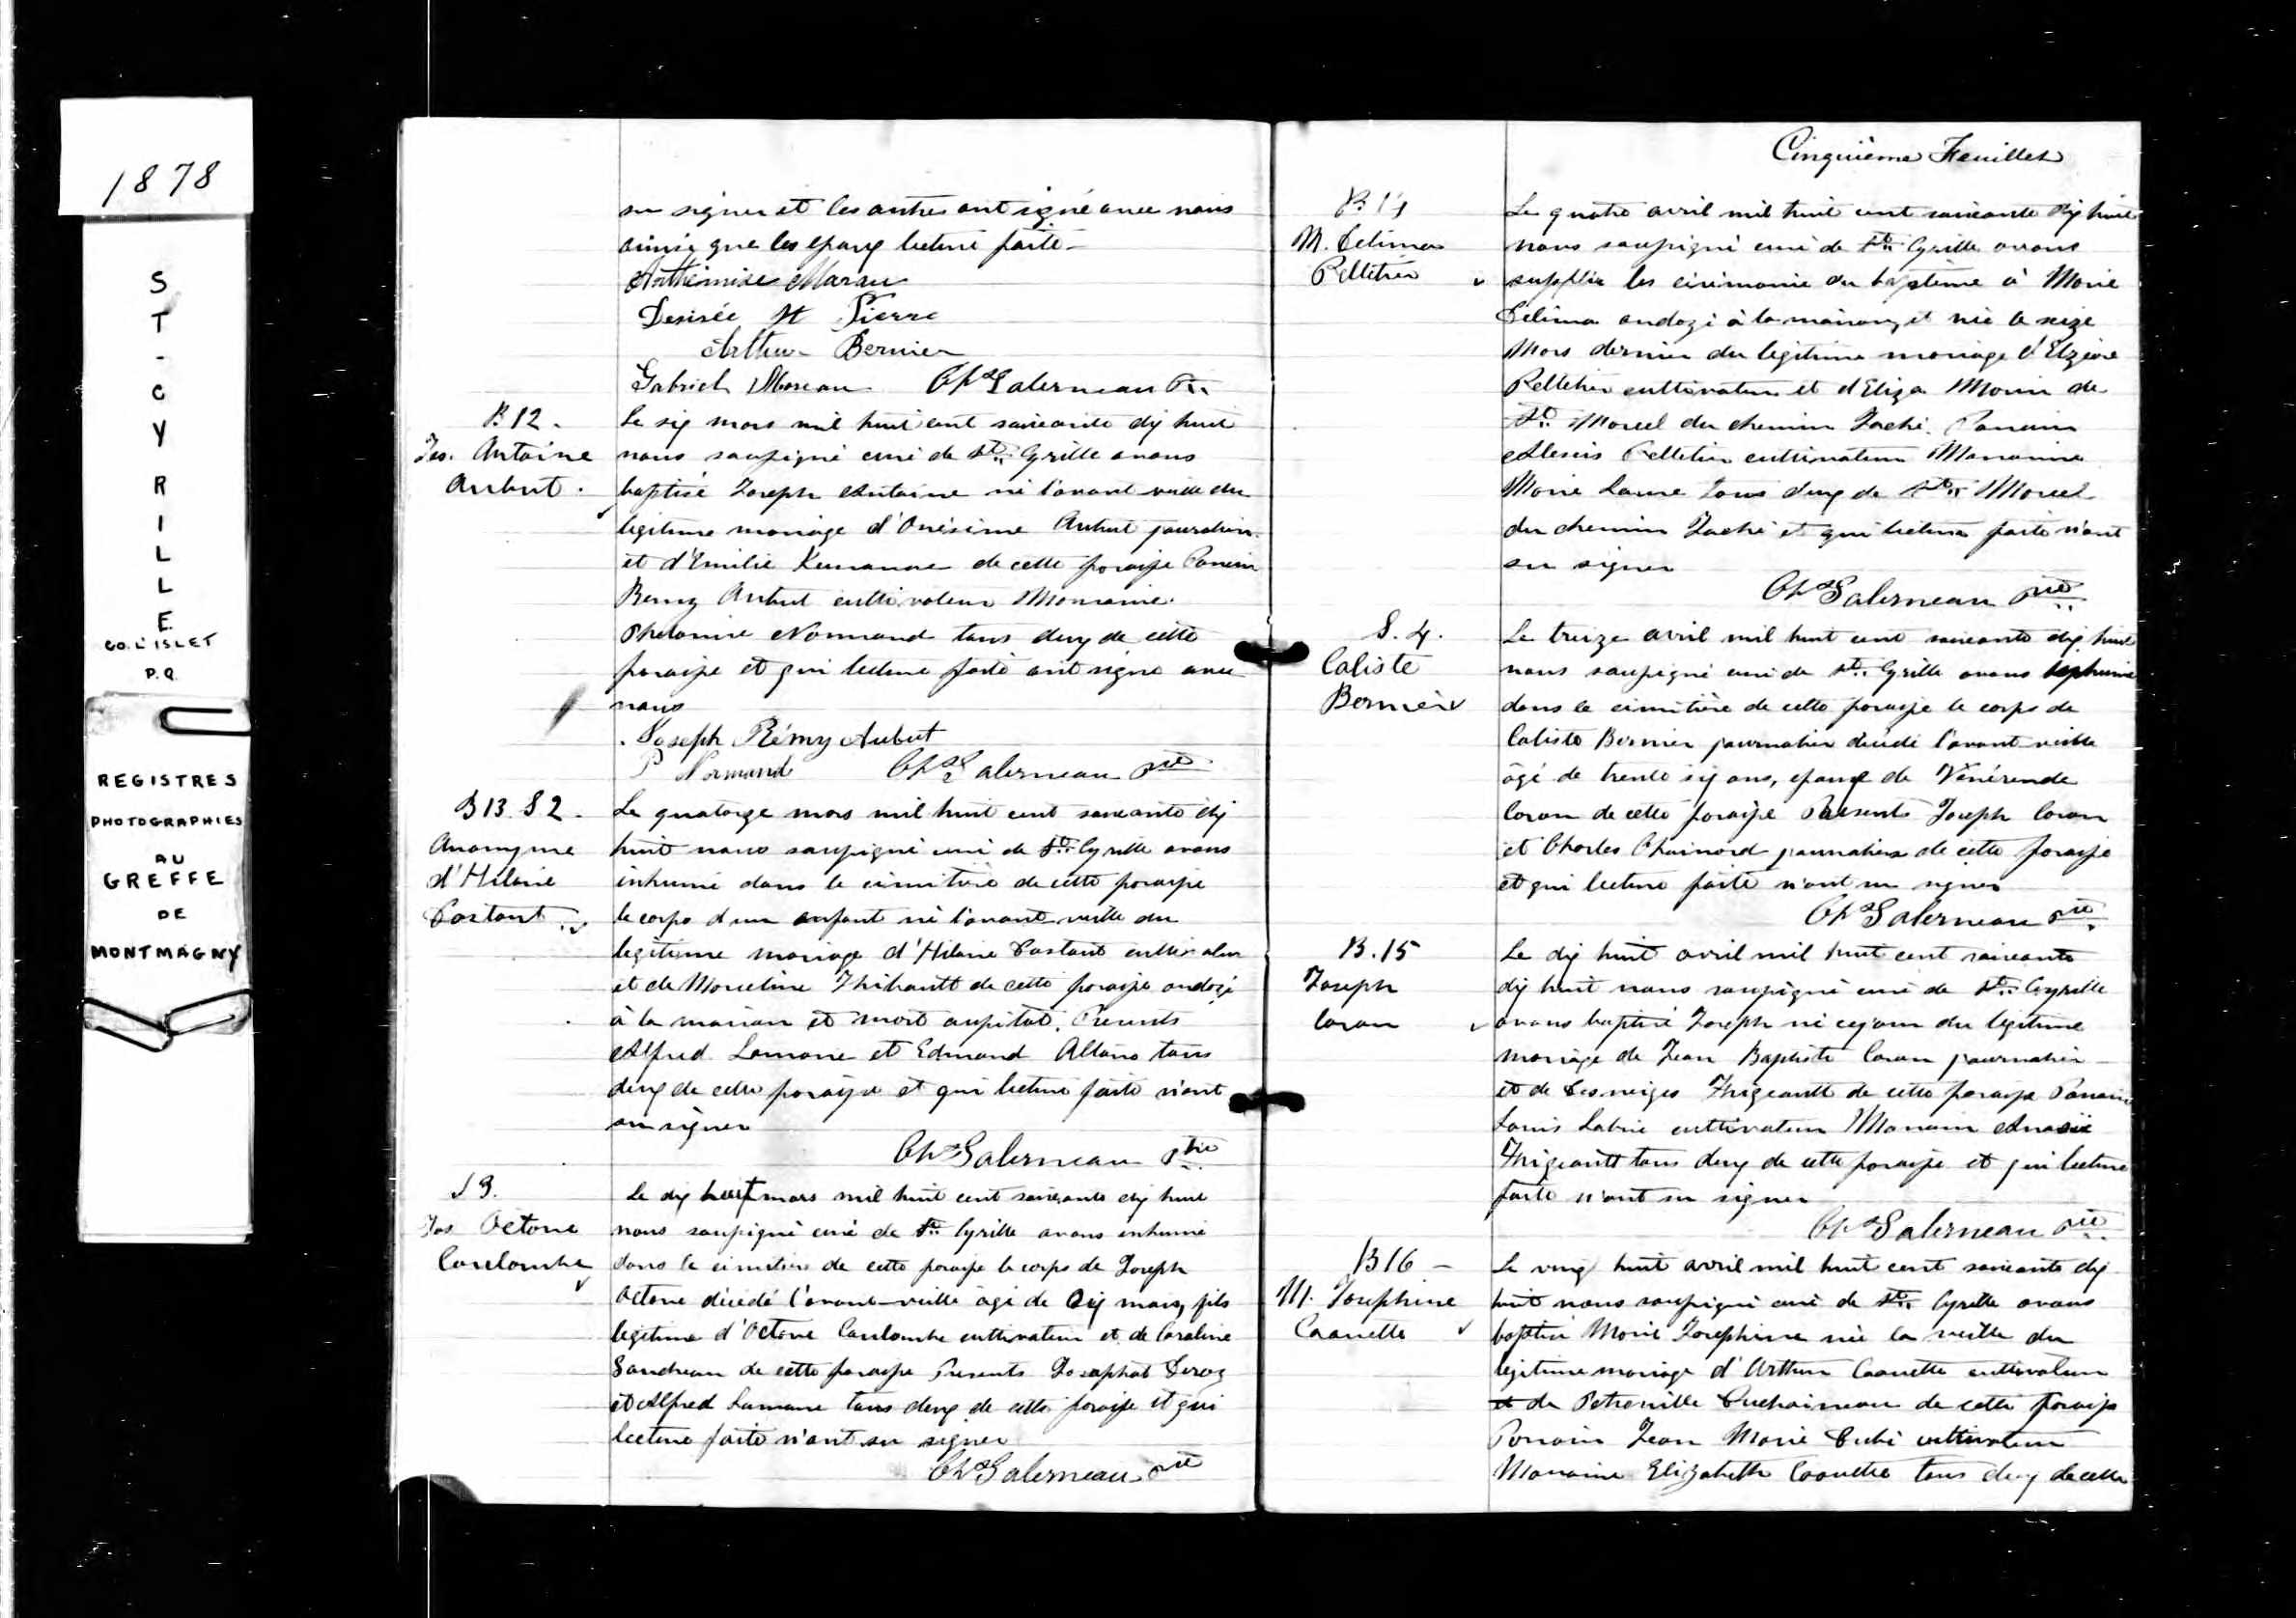 1878
ST-CYRILLE
CO. L'ISLET
P.Q.
REGISTRES
PHOTOGRAPHIES
AU
GREFFE
DE
MONTMAGNY
su signer et les autres ont signé avec nous
ainsi que les epoux lecture faite -
Arthémise Marau
Desirée St Pierre
Arthur Bernier
Gabriel Moreau Chs Galerneau Ptr
B12.
Jos. Antoine
Aubut.
Le six mars mil huit cent soixante dix huit
nous soussigné curé de St. Cyrille avons
baptisé Joseph Antoine né l'avant veille du
legitime mariage d'Onésime Aubut journalier
et d'Emilie de cette paroisse Parrain
Remy Aubut cultivateur Marraine
Philomine Normand tous deux de cette
paroisse et qui lecture faite ont signé avec
nous
Joseph Rémy Aubut
P Normand Chs Galerneau Ptre
B13. S2.
Anonyme
d'Hilaire
Tostant
Le quatorze mars mil huit cent soixante dix
huit nous soussigné curé de St. Cyrille avons
inhumé dans le cimitière de cette paroisse
le corps d'un enfant né l'avant veille du
legitime mariage d'Hilaire Tostant cultivateur
et de Marceline Thibault de cette paroisse ondoyé
à la maison et mort aussitot. Presents
Alfred Lamarre et Edmond tous
deux de cette paroisse et qui lecture faite n'ont
su signer
Chs Galerneau Ptre
S3.
Jos Octave
Coulombe
Le dix huit mars mil huit cent soixante dix huit
nous soussigné curé de St. Cyrille avons inhumé
dans le cimitière de cette paroisse le corps de Joseph
Octave décédé l'avant-veille agé de dix mois, fils
legitime d'Octave Coulombe cultivateur et de Caroline
Gaudreau de cette paroisse Presents Josaphat
et Alfred Lamarre tous deux de cette paroisse et qui
lecture faite n'ont su signer
Chs Galerneau Ptre
Cinquième Feuillet
B14
M. Delima
Pelletier
Le quatre avril mil huit cent soixante dix huit
nous soussigné curé de St. Cyrille avons
supplée les cérémonie du baptème à Marie
Delima ondoyé à la maison, et née le seize
Mars dernier du legitime mariage d'Elzéar
Pelletier cultivateur et d'Eliza Morin de
St. Marcel du chemin Taché. Parrain
Alexis Pelletier cultivateur Marraine
Marie Laure tous deux de St. Marcel
du chemin Taché et qui lecture faite n'ont
su signer
Chs Galerneau Ptre
S. 4.
Caliste
Bernier
Le treize avril mil huit cent soixante dix huit
nous soussigné curé de St. Cyrille avons inhumé
dans le cimitière de cette paroisse le corps de
Caliste Bernier journalier décédé l'avant-veille
âgé de trente six ans, epoux de Vénérende
Caron de cette paroisse Présents Joseph Caron
et Charles Chuinard journaliers de cette paroisse
et qui lecture faite n'ont su signer
Chs Galerneau Ptre
B.15
Joseph
Caron
Le dix huit avril mil huit cent soixante
dix huit nous soussigné curé de St. Cyrille
avons baptisé Joseph né ce jour du legitime
mariage de Jean Baptiste Caron journalier
et de Desneiges Frigeault de cette paroisse Parrain
Louis Labrie cultivateur Marraine
Frigeault tous deux de cette paroisse et qui lecture
faite n'ont su signer
Chs Galerneau Ptre
B16 -
M. Josephine
Caouette
Le vingt huit avril mil huit cent soixante dix
huit nous soussigné curé de St. Cyrille avons
baptisé Marie Josephine née la veille du
legitime mariage d'Arthur Caouette cultivateur
et de Petronille Duchaineau de cette paroisse
Parrain Jean Marie Dubé cultivateur
Marraine Elizabeth Caouette tous deux de cette